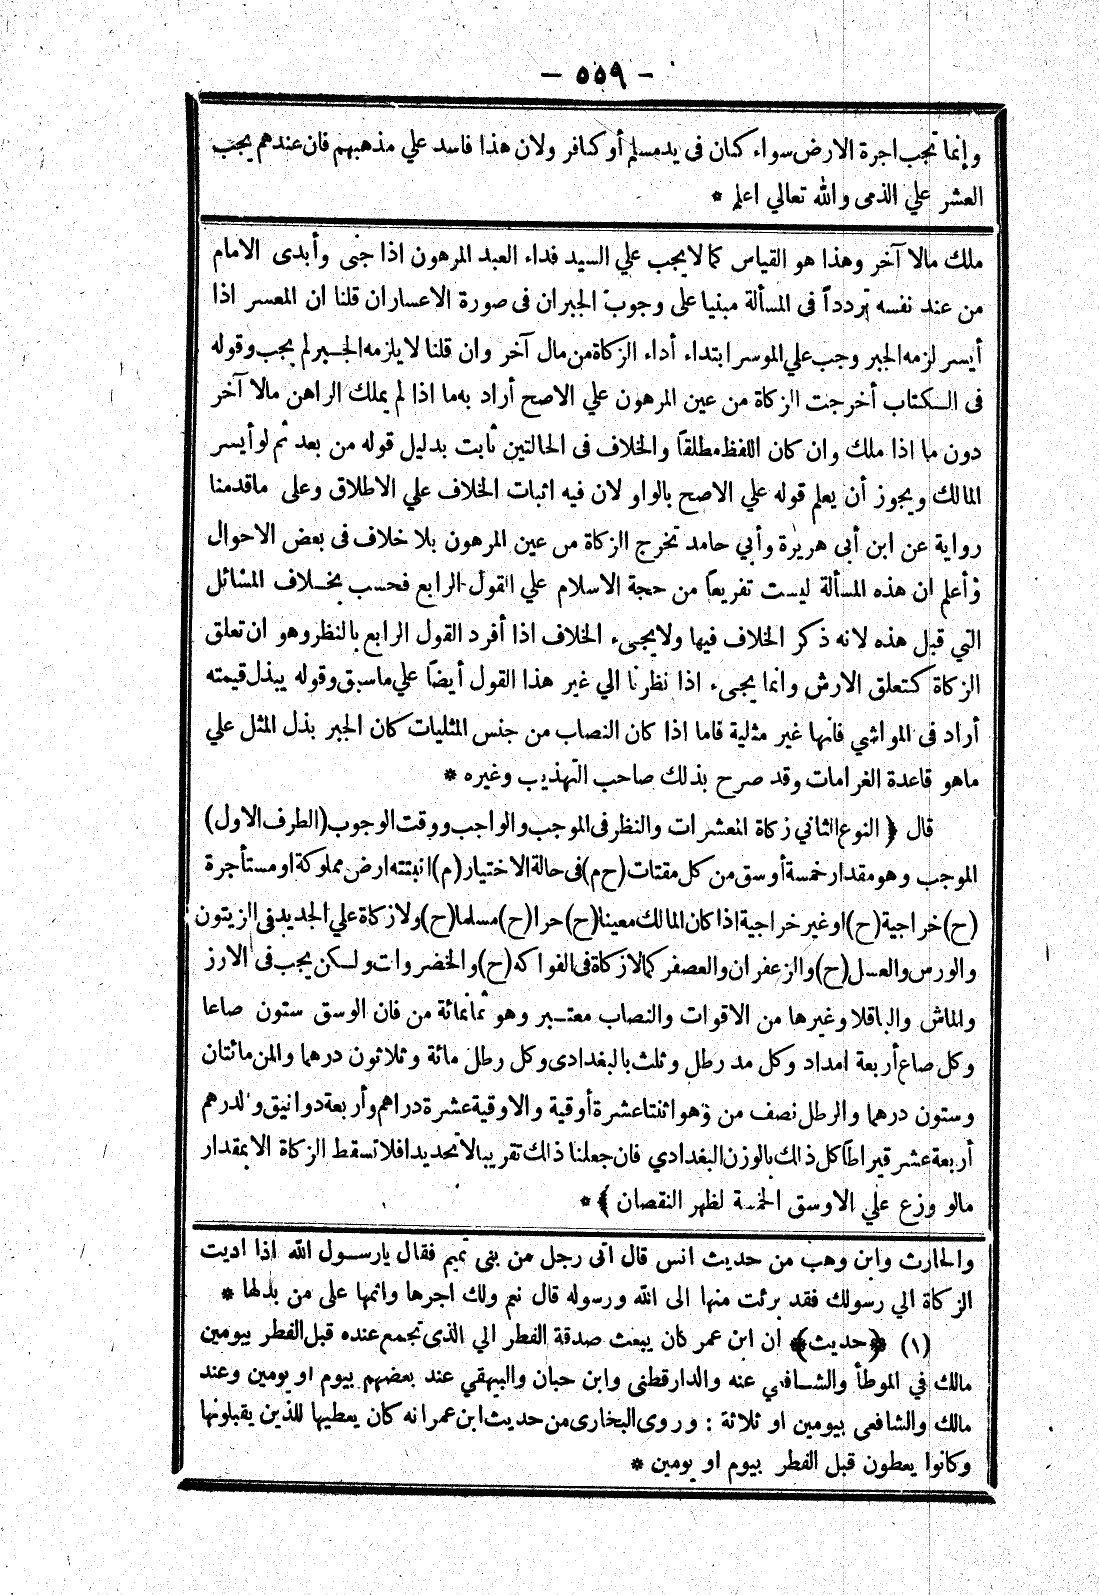 - ٥٥٩ -
وإنما تجب اجرة الارض سواء كان فى يد مسلم أو كافر ولان هذا فاسد علي مذهبهم فان عندهم يجب
العشر علي الذمى والله تعالي اعلم *
ملك مالا آخر وهذا هو القياس كما لا يجب علي السيد فداء العبد المرهون اذا جنى وأبدى الامام
من عند نفسه تردداً فى المسألة مبنيا على وجوب الجبران فى صورة الاعسار ان قلنا ان المعسر اذا
أيسر لزمه الجبر وجب علي الموسر ابتداء أداء الزكاة من مال آخر وان قلنا لا يلزمه الجبر لم يجب وقوله
فى الكتاب أخرجت الزكاة من عين المرهون علي الاصح أراد به ما اذا لم يملك الراهن مالا آخر
دون ما اذا ملك وان كان اللفظ مطلقاً والخلاف فى الحالتين ثابت بدليل قوله من بعد ثم لو أيسر
المالك ويجوز أن يعلم قوله علي الاصح بالواو لان فيه اثبات الخلاف علي الاطلاق وعلى ماقدمنا
رواية عن ابن أبى هريرة وأبي حامد تخرج الزكاة من عين المرهون بلا خلاف فى بعض الاحوال
وأعلم ان هذه المسألة ليست تفريعاً من حجة الاسلام علي القول الرابع فحسب بخلاف المسائل
التي قبل هذه لانه ذكر الخلاف فيها ولا يجىء الخلاف اذا أفرد القول الرابع بالنظر وهو ان تعلق
الزكاة كتعلق الارش وانما يجىء اذا نظرنا الي غير هذا القول أيضاً علي ماسبق وقوله يبذل قيمته
أراد فى المواشي فانها غير مثلية فاما اذا كان النصاب من جنس المثليات كان الجبر بذل المثل علي
ماهو قاعدة الغرامات وقد صرح بذلك صاحب التهذيب وغيره *
قال ﴿ النوع الثاني زكاة المعشرات والنظر فى الموجب والواجب ووقت الوجوب (الطرف الاول)
الموجب وهو مقدار خمسة أوسق من كل مقتات (ح م) فى حالة الاختيار (م) انبتته ارض مملوكة او مستأجرة
(ح) خراجية (ح) او غير خراجية اذا كان المالك معينا (ح) حرا (ح) مسلما (ح) ولا زكاة علي الجديد فى الزيتون
والورس والعسل (ح) والزعفران والعصفر كما لا زكاة فى الفواكه (ح) والخضروات ولكن يجب فى الارز
والماش والباقلا وغيرها من الاقوات والنصاب معتبر وهو ثمانمائة من فان الوسق ستون صاعا
وكل صاع أربعة امداد وكل مد رطل وثلث بالبغدادى وكل رطل مائة وثلاثون درهما والمن مائتان
وستون درهما والرطل نصف من وهو اثنتا عشرة أوقية والاوقية عشرة دراهم وأربعة دوانيق والدرهم
أربعة عشر قيراطاً كل ذلك بالوزن البغدادي فان جعلنا ذلك تقريبا لا تحديدا فلا تسقط الزكاة الا بمقدار
مالو وزع علي الاوسق الخمسة لظهر النقصان ﴾ *
والحارث وابن وهب من حديث انس قال اتى رجل من بنى تميم فقال يارسول الله اذا اديت
الزكاة الي رسولك فقد برئت منها الى الله ورسوله قال نعم ولك اجرها واثمها على من بدلها *
(١) ﴿حديث﴾ ان ابن عمر كان يبعث صدقة الفطر الي الذى تجمع عنده قبل الفطر بيومين
مالك في الموطأ والشافعي عنه والدارقطنى وابن حبان والبيهقي عند بعضهم بيوم او يومين وعند
مالك والشافعى بيومين او ثلاثة : وروى البخارى من حديث ابن عمر انه كان يعطيها للذين يقبلونها
وكانوا يعطون قبل الفطر بيوم او يومين *